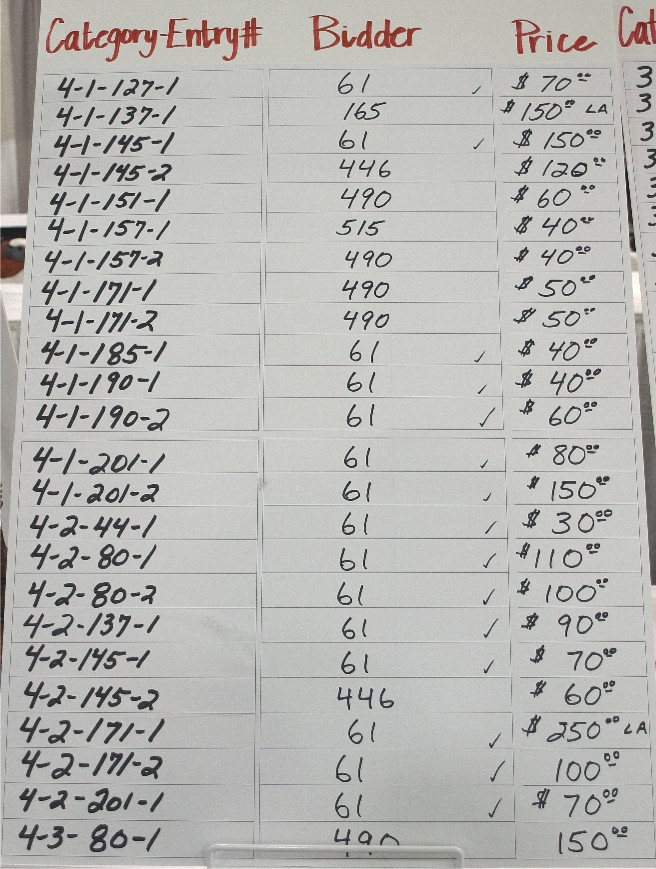 Category-Entry# Bidder Price Cat
4-1-127-1 61 ✓ $ 70.00 3
4-1-137-1 165 $ 150.00 LA 3
4-1-145-1 61 ✓ $ 150.00 3
4-1-145-2 446 $ 120.00 3
4-1-151-1 490 $ 60.00
4-1-157-1 515 $ 40.00
4-1-157-2 490 $ 40.00
4-1-171-1 490 $ 50.00
4-1-171-2 490 $ 50.00
4-1-185-1 61 ✓ $ 40.00
4-1-190-1 61 ✓ $ 40.00
4-1-190-2 61 ✓ $ 60.00
4-1-201-1 61 ✓ $ 80.00
4-1-201-2 61 ✓ $ 150.00
4-2-44-1 61 ✓ $ 30.00
4-2-80-1 61 ✓ $ 110.00
4-2-80-2 61 ✓ $ 100.00
4-2-137-1 61 ✓ $ 90.00
4-2-145-1 61 ✓ $ 70.00
4-2-145-2 446 $ 60.00
4-2-171-1 61 ✓ $ 250.00 LA
4-2-171-2 61 ✓ 100.00
4-2-201-1 61 ✓ $ 70.00
4-3-80-1 490 150.00